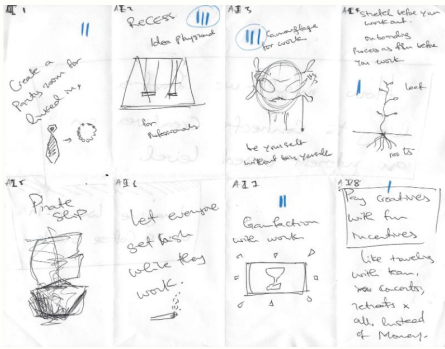 AII 1
Create a
Party room for
linked in,
AII 2
ReCESS
Idea Playground
for
Professionals
AII 3
Camouflage
for work
be yourself
without being yourself
AII 4
Stretch before you
work out.
onboarding
Process as film before
You work
leaf
roots
AII 5
Pirate
Ship
AII 6
Let everyone
get fresh
while they
work.
AII 7
Gamfaction
with work
AII 8
Pay creatives
with fun
incentives
like traveling
with team,
concerts,
retreats x
all, instead
of Money.